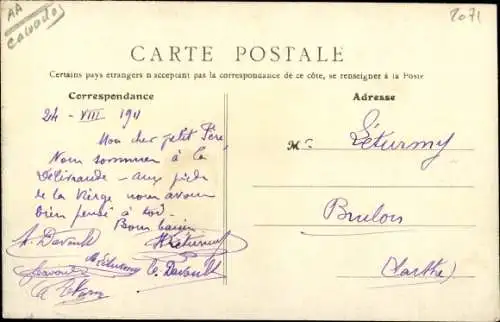 AA
calvados
2071
CARTE POSTALE
Certains pays étrangers n'acceptant pas la correspondance de ce côte, se renseigner à la Poste
Correspondance
24 - VIII - 1911
Mon cher petit Père
Nous sommes à la
Délivrande - aux pieds
de la Vierge nous avons
bien pensé à toi -
Bons baisers
A. Davault
Leturmy
Davault
Leturmy C. Davault
A
Adresse
Mr Léturmy
Brulon
(Sarthe)